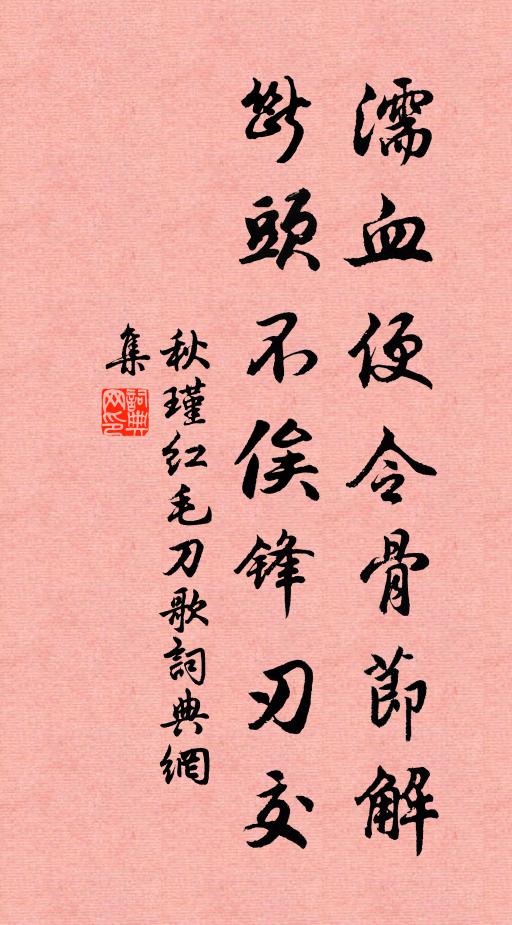 濡血便令骨節解
斷頭不俟鋒刃交
秋瑾紅毛刀歌詞典網
集
詞典
网印